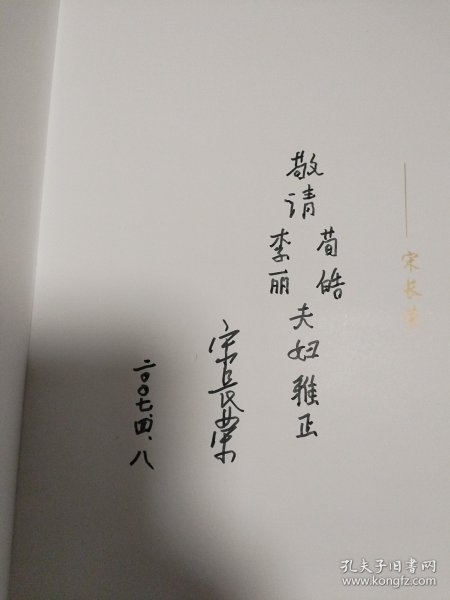 宋长荣
敬请
荀皓
李丽
夫妇雅正
宋長荣
二〇〇七.四.八
孔夫子旧书网
www.kongfz.com